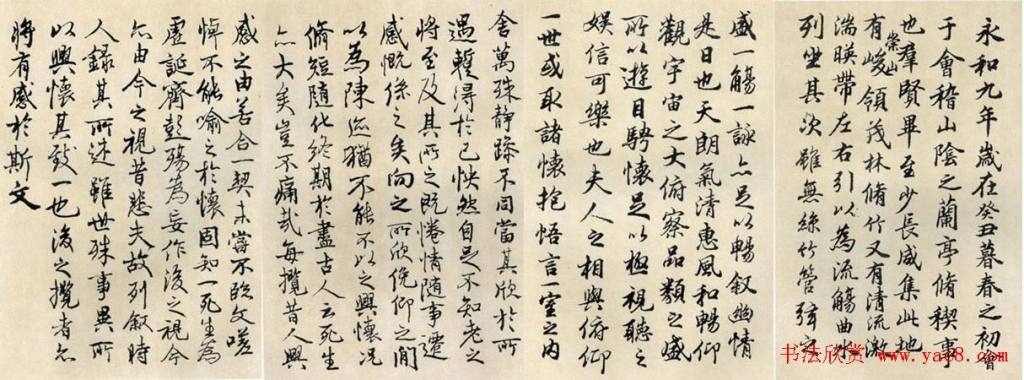 永和九年歲在癸丑暮春之初會
于會稽山陰之蘭亭脩稧事
也羣賢畢至少長咸集此地
有崇山峻領茂林脩竹又有清流激
湍暎帶左右引以為流觴曲水
列坐其次雖無絲竹管弦之
盛一觴一詠亦足以暢敘幽情
是日也天朗氣清惠風和暢仰
觀宇宙之大俯察品類之盛
所以遊目騁懷足以極視聽之
娛信可樂也夫人之相與俯仰
一世或取諸懷抱悟言一室之內
舍萬殊静躁不同當其欣於所
遇蹔得於己怏然自足不知老之
將至及其所之既惓情隨事遷
感慨係之矣向之所欣俛仰之閒
以為陳迹猶不能不以之興懷況
脩短隨化終期於盡古人云死生
亦大矣豈不痛哉每攬昔人興
感之由若合一契未嘗不臨文嗟
悼不能喻之於懷固知一死生為
虛誕齊彭殤為妄作後之視今
亦由今之視昔悲夫故列敘時
人錄其所述雖世殊事異所
以興懷其致一也後之攬者亦
將有感於斯文
书法欣赏
www.yac8.com